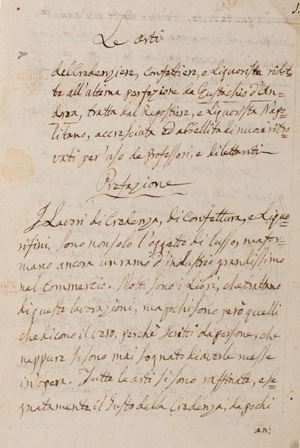 Le arti
del Credenziere, Confettiere, e Liquorista ridot-
te all'ultima perfezione da Eustachio d'An-
drea, tratta dal Repostiere, e Liquorista Napo-
litano, accresciuta ed abbellita di nuovi ritro-
vati per uso de Professori, e dilettanti
Prefazione
I Lavori di Credenza, di Confettura, e Liquo-
rifizii, sono non solo l'oggetto di lusso, ma for-
mano ancora un ramo d'industria grandissimo
nel commercio. Molti sono i Libri, che trattano
di queste lavorazioni, ma pochi sono però quelli
che dicono il vero, perchè scritti da persone, che
neppure si sono mai sognato di averle messe
in opera. Tutte le arti si sono raffinate, e se-
gnatamente il Gusto della Credenza, da pochi
an: